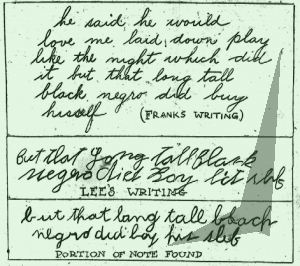 he said he would
love me laid down play
like the night witch did
it but that long tall
black negro did buy
hisself (FRANKS WRITING)
but that long tall black
negro did boy his slef
LEE'S WRITING
but that long tall black
negro did boy his slef
PORTION OF NOTE FOUND